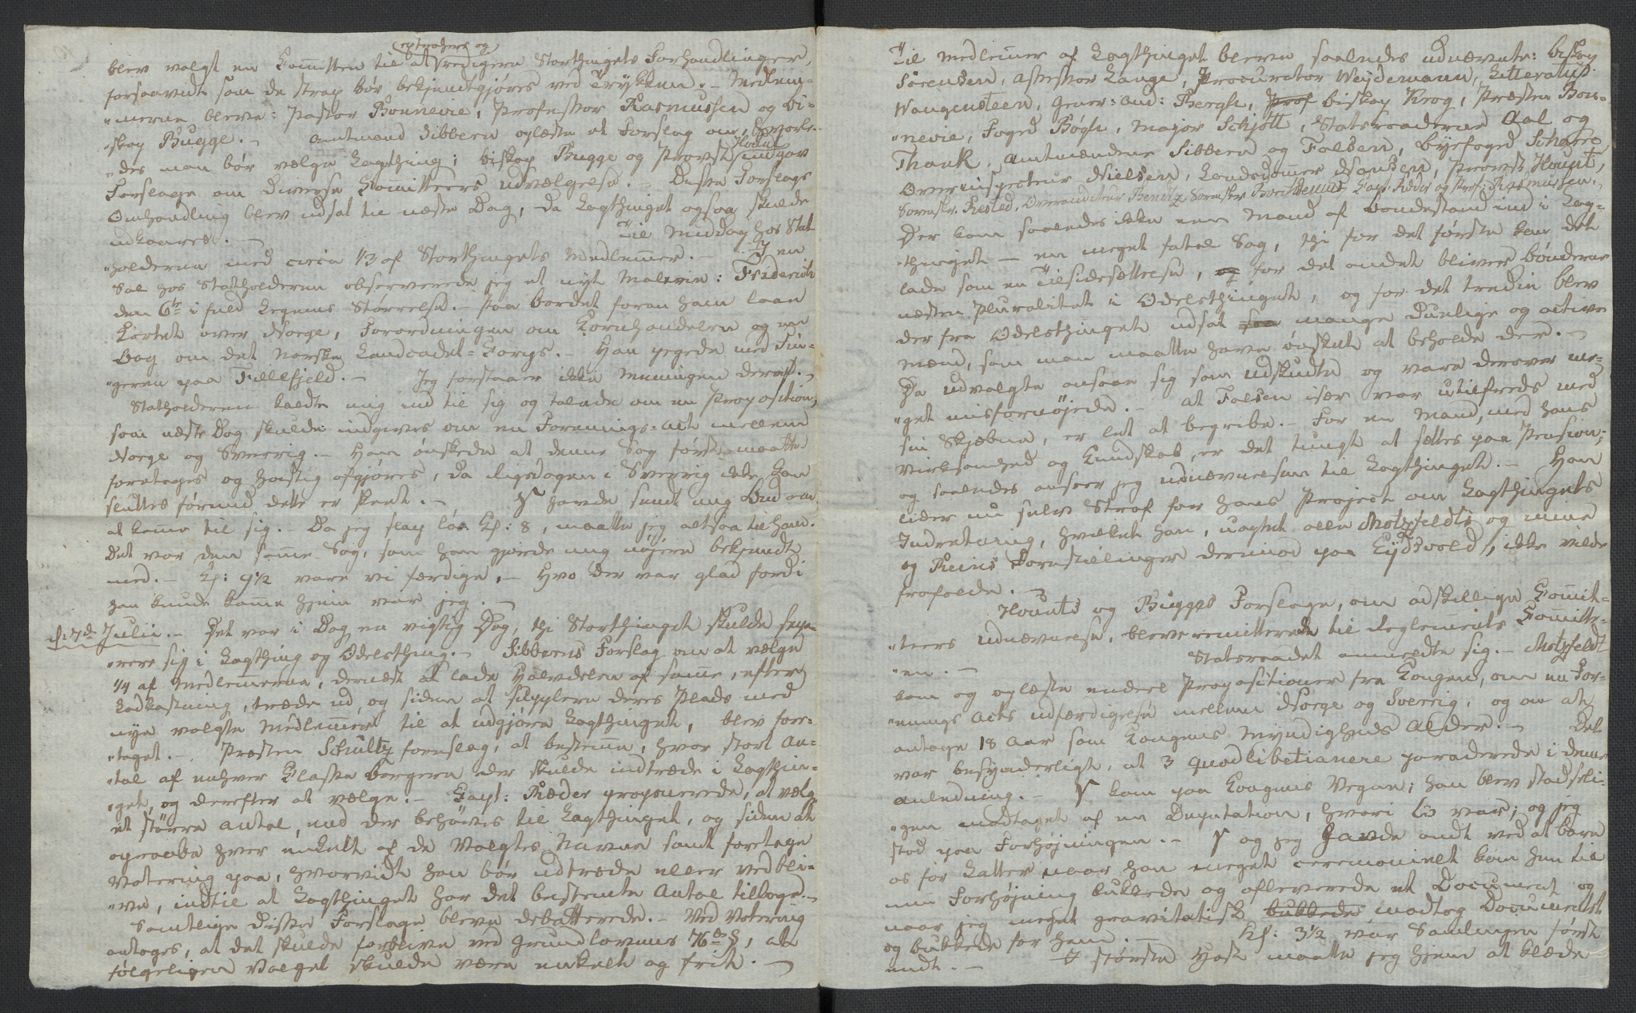 extrahere og
blev valgt en Committee til at redigere Storthingets Forhandlinger,
forsaavidt som de strax bør bekjendtgjøres ved Trykken. – Medlem-
"merne bleve: Pastor Bonnevie, Professor Rasmussen og Bi-
"skop Bugge. – Amtmand Sibbern oplæste et Forslag om, hvorle-
"des man bør vælge Lagthing; biskop Bugge og Provst Hount indgav
Forslage om Diverse Comitteers udvælgelse. – Disse Forslags
Omhandling blev udsat til næste Dag, da Lagthinget ogsaa skulde
udkaares. –
Til Middag hos Stat
"holderen med circa 1/3 af Storthingets Medlemer. – I en
Sal hos Statholderen observerede jeg et nyt Malerie: Friderich
den 6te i fuld Legems Størrelse. – paa bordet foran ham laae
Kortet over Norge, Forordningen om Kornhandelen og en
Bog om det norske Landcadet-Corps. – Han pegede med Fin-
"geren paa Fillefjeld. – Jeg forstaaer ikke Meningen deraf. –
Statholderen kaldte mig ind til sig og talede om en Proposition,
som næste Dag skulde indgives om en Forenings-Act mellem
Norge og Sverrig. – Ham ønskede at denne Sag først maatte
foretages og hastig afgjøres, da Rigsdagen i Sverrig ikke kan
sluttes førend dette er skeet. – havde sendt mig Bud om
at komme til sig. Da jeg slap løs Kl: 8, maatte jeg altsaa til ham.
Det var den samme Sag, som han gjorde mig nøjere bekjendt
med. – Kl: 9½ vare vi færdige, – Hvo der var glad fordi
han kunde komme hjem var jeg. –
d: 7de Julii. – Det var i Dag en vigtig Dag, thi Storthinget skulde sepa-
"rere sig i Lagthing og Odelsthing. – Sibberns Forslag om at vælge
1/4 af Medlemerne, dernæst at lade Halvdelen af samme, efter
Lodkastning, træde ud, og siden at supplere deres Plads med
nye valgte Medlemmer til at udgjøre Lagthinget, blev fore-
"taget. – Præsten Schultz foreslog, at bestemme, hvor stort An-
"tal af enhver Classe borgere der skulde indtræde i Lagthin-
"get, og derefter at vælge. – Capt: Ræder proponerede, at vælge
et større Antal, end der behøves til Lagthinget, og siden at
opraabe hver enkelt af de Valgtes Navne samt foretage
Votering paa, hvorvidt han bør udtræde eller vedbli-
"ve, indtil at Lagthinget har det bestemte Antal tilbage. –
Samtlige disse Forslage bleve debatterede. – Ved Votering
antoges, at det skulde forblive ved Grundlovens 76de §, at
følgeligen Valget skulde være enkelt og frit. –
Til Medlemer af Lagthinget bleve saaledes udnævnte: biskop
Sørensen, Assessor Lange, Procurator Weidemann, Litteratus
Wangensteen, Gener: Aud: Bergh, Prof biskop Krog, Præsten Bon-
"nevie, Foged Bøgh, Major Schjøtt, Statsraaderne Aal og
Thank, Amtmændene Sibbern og Falsen, byefoged Scharre
Overinspecteur Nielsen, Landsdommer, Provst Hount,
Sorenskr. Rested, Overauditeur Bentz, Sorenskr. Capt. Ræder og Prof: Rasmussen.
Der kom saaledes ikke een Mand af bondestand ind i Lag-
"thinget – en meget fatal Sag, thi for det første lader det
lade som en Tilsidesættelse, for det andet bliver bønderne
næsten Pluralitet i Odelsthinget, og for det tredie blev
der fra Odelsthinget udsat mange duelige og active
Mænd, som man maatte have ønsket at beholde der. –
De udvalgte ansaae sig som udskudte og vare derover me-
"get misfornøjede. – At Falsen især var utilfreds med
sin Skjæbne, er let at begribe. – For en Mand, med hans
Virksomhed og Kundskab, er det tungt at sættes paa Pension;
og saaledes anseer jeg udnævnelsen til Lagthinget. – Han
lider nu selv Straf for hans Project om Lagthingets
Indretning, hvilket han, uagtet alle Motzfeldts og mine
og Reins Forestillinger derimod paa Eydsvold, ikke vilde
frafalde. –
Hounts og Bugges Forslage, om adskillige Comit-
"teers udnævnelse, bleve remitterede til Reglements Committe-
"en. –
Statsraadet anmeldte sig. – Motzfeldt
kom og oplæste endeel Propositioner fra Kongen, om en For-
"enings Acts udfærdigelse mellem Norge og Sverrig, og om at
antage 18 Aar som Kongens Myndigheds Alder. – Det
var besynderligt, at 3 quodlibetianere paraderede i denne
anledning. – kom paa Kongens Vegne; han blev stadseli-
"gen modtaget af en Deputation, hvori var; og jeg
stod paa Forhøjningen. – og jeg havde ondt ved at bare
os for Latter naar han meget ceremonielt kom hen til
min Forhøjning bukkede og afleverede et Document og
naar jeg meget gravitatisk bukkede modtog Documentet
og bukkede for ham. – Kl: 3½ var Samlingen først
endt. – I største Hast maatte jeg hjem at klæde